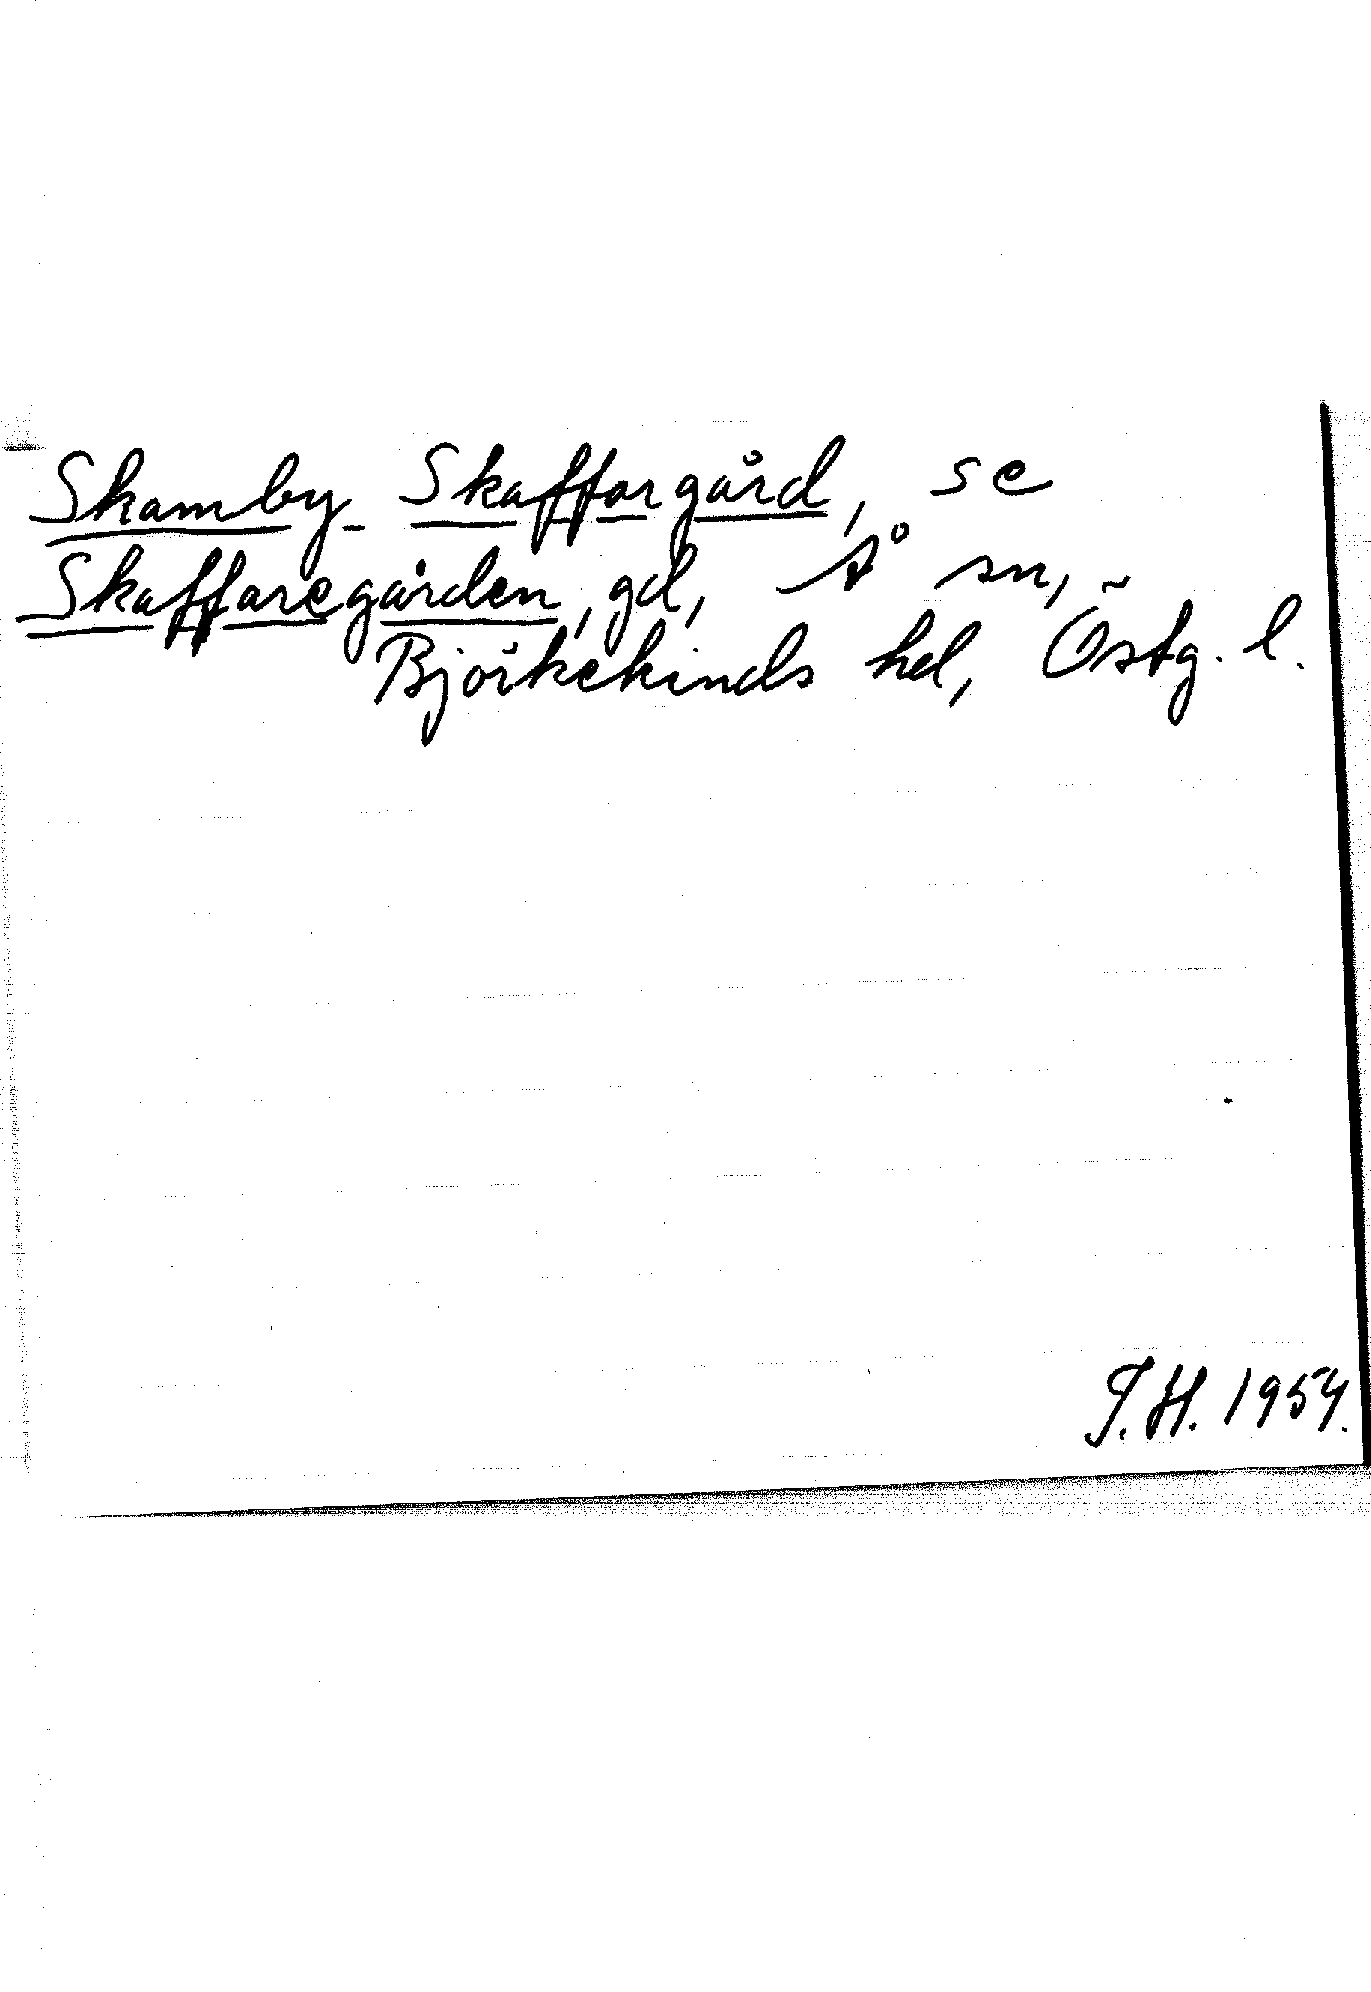 Skamby Skaffargård, se
Skaffaregården, gd, Å sn,
Björkekinds hd, Östg. l.
T.H. 1954.